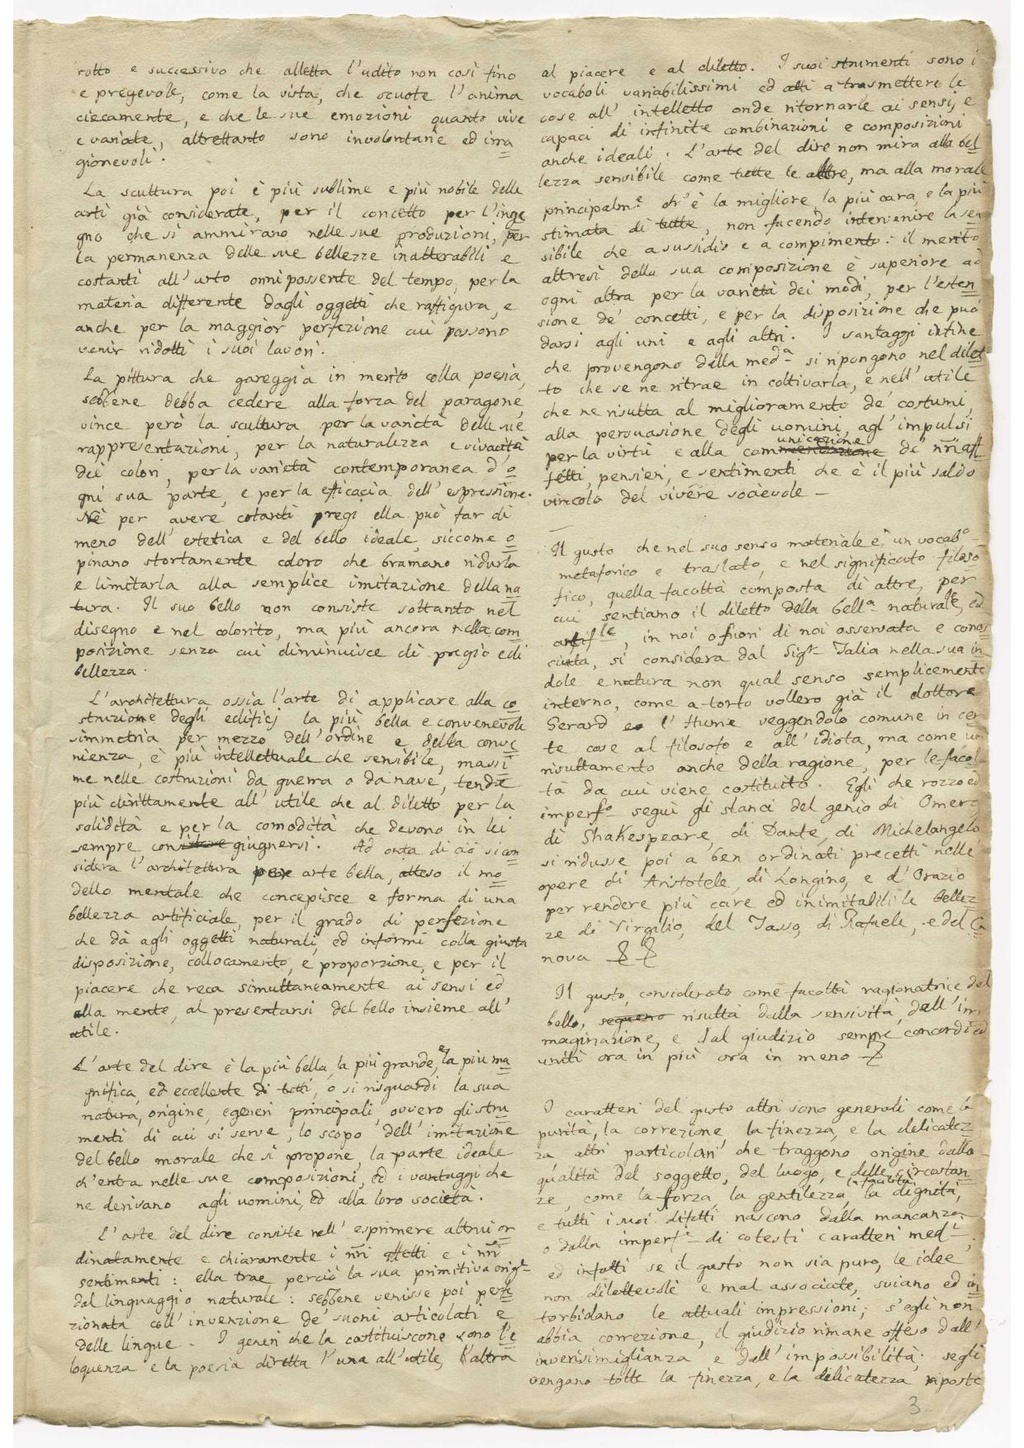 rotto e successivo che alletta l'udito non così fino
e pregevole, come la vista, che scuote l'anima
ciecamente, e che le sue emozioni quanto vive
e variate, altrettanto sono involontarie ed irra
gionevoli.
La scultura poi è più sublime e più nobile delle
arti già considerate, per il concetto per l'inge
gno che si ammirano nelle sue produzioni, per
la permanenza delle sue bellezze inalterabili e
costanti all'urto onnipossente del tempo, per la
materia differente dagli oggetti che raffigura, e
anche per la maggior perfezione cui possono
venir ridotti i suoi lavori.
La pittura che gareggia in merito colla poesia,
sebbene debba cedere alla forza del paragone,
vince però la scultura per la varietà delle sue
rappresentazioni, per la naturalezza e vivacità
dei colori, per la varietà contemporanea d'o
gni sua parte, e per la efficacia dell'espressione.
Nè per avere cotanti pregi ella può far di
meno dell'estetica e del bello ideale, siccome o
pinano stortamente coloro che bramano ridurla
e limitarla alla semplice imitazione della na
tura. Il suo bello non consiste soltanto nel
disegno e nel colorito, ma più ancora nella com
posizione senza cui diminuisce di pregio e di
bellezza.
L'architettura ossia l'arte di applicare alla co
struzione degli edificj la più bella e convenevole
simmetria per mezzo dell'ordine e della conve
nienza, è più intellettuale che sensibile, massi
me nelle costruzioni da guerra o da nave, tende
più dirittamente all'utile che al diletto per la
solidità e per la comodità che devono in lei
sempre congiugnersi. Ad onta di ciò si con
sidera l'architettura per arte bella, atteso il mo
dello mentale che concepisce e forma di una
bellezza artificiale, per il grado di perfezione
che dà agli oggetti naturali, ed informi colla giusta
disposizione, collocamento, e proporzione, e per il
piacere che reca simultaneamente ai sensi ed
alla mente, al presentarsi del bello insieme all'
utile.
L'arte del dire è la più bella, la più grande, e la più ma
gnifica, ed eccellente di tutti, o si risguardi la sua
natura, origine, e generi principali, ovvero gli stru
menti di cui si serve, lo scopo dell'imitazione
del bello morale che si propone, la parte ideale
ch'entra nelle sue composizioni, ed i vantaggi che
ne derivano agli uomini, ed alla loro società.
L'arte del dire consiste nell'esprimere altrui or
dinatamente e chiaramente i nrī affetti e i nrī
sentimenti: ella trae perciò la sua primitiva orige
dal linguaggio naturale: sebbene venisse poi perfe
zionata coll'invenzione de' suoni articolati e
delle lingue. I generi che la costituiscono sono l'e
loquenza e la poesia diretta l'una all'utile, l'altra
al piacere e al diletto. I suoi strumenti sono i
vocaboli variabilissimi ed atti a trasmettere le
cose all'intelletto onde ritornarle ai sensi, e
capaci di infinite combinazioni e composizioni
anche ideali. L'arte del dire non mira alla bel
lezza sensibile come tutte le altre, ma alla morale
principalme. ch'è la migliore la più cara, e la più
stimata di tutte, non facendo intervenire la sen
sibile che a sussidio e a compimento: il merito
altresì della sua composizione è superiore ad
ogni altra per la varietà dei modi, per l'esten
sione de' concetti, e per la disposizione che può
darsi agli uni e agli altri. I vantaggi infine
che provengono dalla meda. si ripongono nel dilet
to che se ne ritrae in coltivarla, e nell'utile
che ne risulta al miglioramento de' costumi,
alla persuasione degli uomini, agl'impulsi
per la virtù e alla comunicazione de' nrī af
fetti, pensieri, e sentimenti che è il più saldo
vincolo del vivere socievole —
Il gusto che nel suo senso materiale è un vocabo.
metaforico e traslato, e nel significato filoso
fico, quella facoltà composta di altre, per
cui sentiamo il diletto della bella naturale, ed
artifle, in noi o fuori di noi osservata e conos
ciuta, si considera dal Sigr. Talia nella sua in
dole e natura non qual senso semplicemente
interno, come a torto vollero già il dottore
Gerard e l'Hume veggendolo comune in cer
te cose al filosofo e all'idiota, ma come un
risultamento anche della ragione, per le facol
tà da cui viene costituito. Egli che rozzo ed
imperfo. seguì gli slanci del genio di Omero
di Shakespeare, di Dante, di Michelangelo
si ridusse poi a ben ordinati precetti nelle
opere di Aristotele, di Longino, e d'Orazio
per rendere più care ed inimitabili le bellez
ze di Virgilio, del Tasso, di Rafaele, e del Ca
nova
Il gusto, considerato come facoltà ragionatrice del
bello, risulta dalla sensività, dall'im
maginazione, e dal giudizio sempre concordi ed
uniti ora in più ora in meno
I caratteri del gusto altri sono generali come la
purità, la correzione, la finezza, e la delicatez
za altri particolari che traggono origine dalla
qualità del soggetto, del luogo, e delle circostan
ze, come la forza la gentilezza, la facilità la dignità,
e tutti i suoi difetti nascono dalla mancanza
o dalla imperfe. di cotesti caratteri medi.
ed infatti se il gusto non sia puro, le idee
non dilettevoli e mal associate, sviano ed in
torbidano le attuali impressioni; s'egli non
abbia correzione, il giudizio rimane offeso dall'
inverisimiglianza e dall'impossibilità; se gli
vengano tolte la finezza, e la delicatezza riposte
3